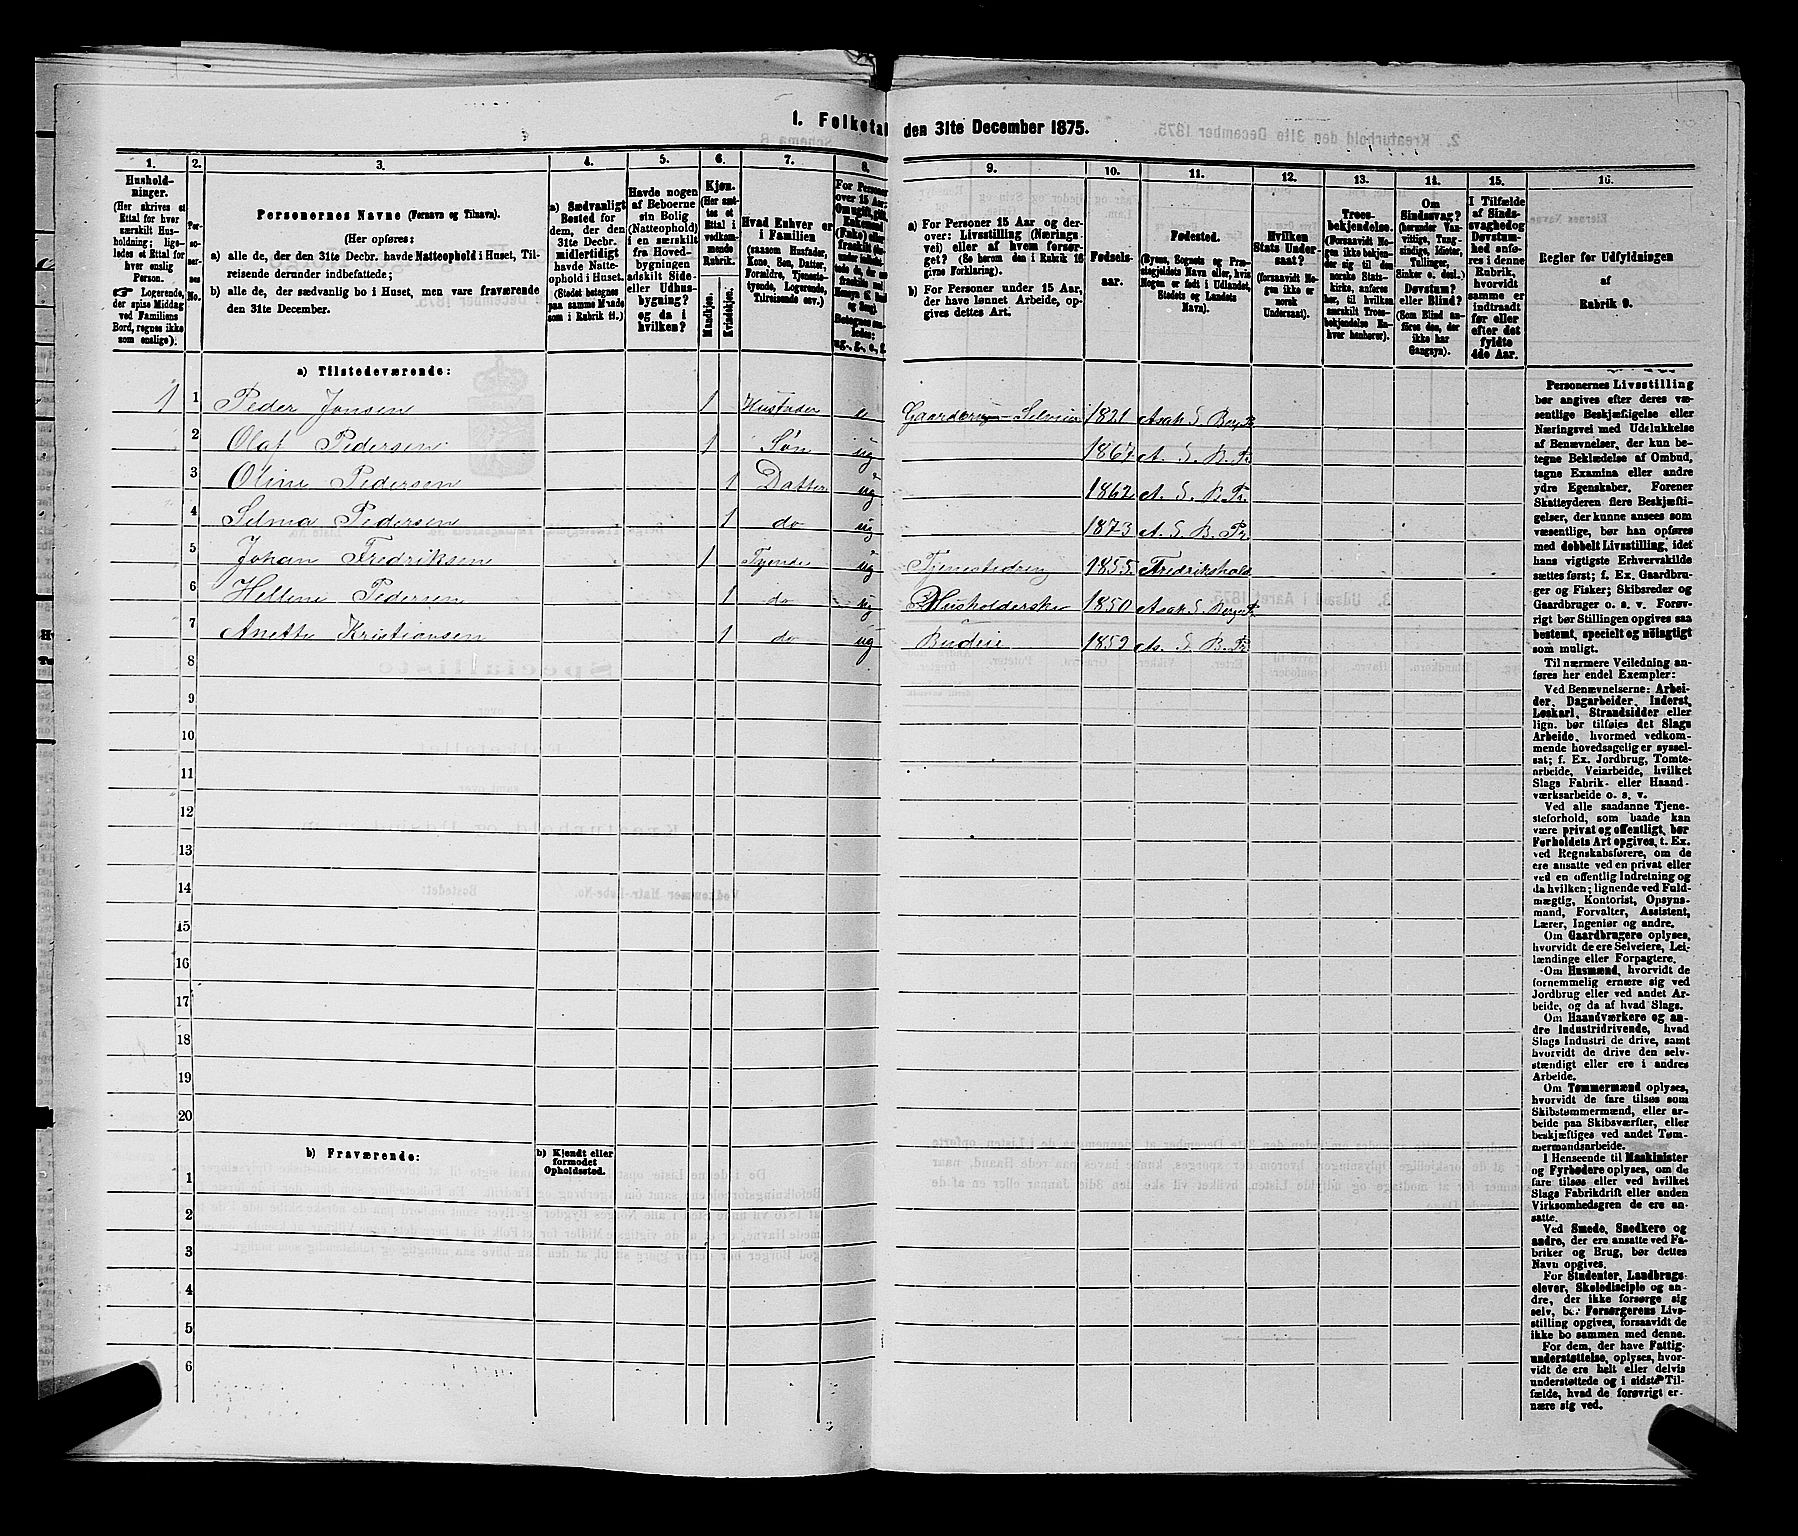 1. Folketal den 31te December 1875.
1. 2. 3. 4. 5. 6. 7. 8. 9. 10. 11. 12. 13. 14. 15. 16.
Hushold-
ninger.
(Her skrives et
Ettal for hver
særskilt Hus-
holdning; lige-
ledes et Ettal for
hver enslig
Person.
☞ Logerende,
der spise Middag
ved Familiens
Bord, regnes ikke
som enslige).
Per-
so-
ner-
nes
No.
Personernes Navne (Fornavn og Tilnavn).
(Her opføres:
a) alle de, der den 31te Decbr. havde Natteophold i Huset, Til-
reisende derunder indbefattede;
b) alle de, der sædvanlig bo i Huset, men vare fraværende
den 31te December.
a) Sædvanligt
Bosted for
dem, der den
31te Decbr.
midlertidigt
havde Natte-
ophold i Huset.
(Stedet betegnes
paa samme Maade
som i Rubrik 11.)
Havde nogen
af Beboerne
sin Bolig
(Natteophold)
i en særskilt
fra Hoved-
bygningen
adskilt Side-
eller Udhus-
bygning?
og da i
hvilken?
Kjøn.
(Her sæt-
tes et
Ettal i
vedkom-
mende
Rubrik.
Mandkjøn.
Kvindekjøn.
Hvad Enhver er
i Familien
(saasom Husfader,
Kone, Søn, Datter,
Forældre, Tjeneste-
tyende, Logerende,
Tilreisende osv.)
For Personer
over 15 Aar:
a) For Personer 15 Aar og der-
over: Livsstilling (Nærings-
vei) eller af hvem forsør-
get? (Se herom den i Rubrik 16
givne Forklaring).
b) For Personer under 15 Aar,
der have lønnet Arbeide, op-
gives dettes Art.
Fødsels-
aar.
Fødested.
(Byens, Sognets og Præ-
stegjeldets Navn eller, hvis
Nogen er født i Udlandet,
Stedets og Landets
Navn).
Hvilken
Stats Under-
saat?
(forsaavidt No-
gen ikke er
norsk
Undersaat).
Troes-
bekjendelse.
(Forsaavidt No-
gen ikke bekjen-
der sig til den
norske Stats-
kirke, anføres
her, til hvilken
særskilt Troes-
bekjendelse En-
hver henhører).
Om
Sindssvag?
(herunder Van-
vittige, Tung-
sindige, Idioter,
Tullinger,
Sinker o. desl.)
Døvstum?
eller Blind?
(Som Blind an-
føres den, der
ikke har
Gangsyn).
I Tilfælde
af Sinds-
svaghed og
Døvstum-
hed anfø-
res i denne
Rubrik,
hvorvidt
samme er
indtraadt
før eller
efter det
fyldte
4de Aar.
Regler for Udfyldningen
af
Rubrik 9.
a) Tilstedeværende:
1 1 Peder Jonsen 1 Husfader e Gaardbru Selveier 1821 Asak S. Berg P.
2 Olaf Pedersen 1 Søn ug 1867 A. S. B. Pr.
3 Oline Pedersen 1 Datter ug 1862 A. S. B. Pr.
4 Selma Pedersen 1 do ug 1873 A. S. B. Pr.
5 Johan Fredriksen 1 Tyende ug Tjenestedreng 1855 Fredrikshald
6 Hellene Pedersen 1 do ug Husholderske 1850 Asak S. Berg P.
7 Anette Kristiansen 1 do ug Budeie 1852 As. S. B. Pr.
8
9
10
11
12
13
14
15
16
17
18
19
20
b) Fraværende:
b) Kjendt eller
formodet
Opholdssted.
1
2
3
4
5
6
Personernes Livsstilling
bør angives efter deres væ-
sentlige Beskjæftigelse eller
Næringsvei med Udelukkelse
af Benævnelser, der kun be-
tegne Beklædelse af Ombud,
tagne Examina eller andre
ydre Egenskaber. Forener
Skatteyderen flere Beskjæfti-
gelser, der kunne ansees som
væsentlige, bør han opføres
med dobbelt Livsstilling, idet
hans vigtigste Erhvervskilde
sættes først; f. Ex. Gaardbru-
ger og Fisker; Skibsreder og
Gaardbruger o. s. v. Forøv-
rigt bør Stillingen opgives saa
bestemt, specielt og nøiagtigt
som muligt.
Til nærmere Veiledning an-
føres her endel Exempler:
Ved Benævnelserne: Arbei-
der, Dagarbeider, Inderst,
Løskarl, Strandsidder eller
lign. bør tilføies det Slags
Arbeide, hvormed vedkom-
mende hovedsagelig er syssel-
sat; f. Ex. Jordbrug, Tomte-
arbeide, Veiarbeide, hvilket
Slags Fabrik- eller Haand-
værksarbeide o. s. v.
Ved alle saadanne Tjene-
steforhold, som baade kan
være privat og offentligt, bør
Forholdets Art opgives, t. Ex.
ved Regnskabsførere, om de
ere ansatte ved en privat eller
ved en offentlig Indretning og
da hvilken; lignende ved Fuld-
mægtig, Kontorist, Opsyns-
mand, Forvalter, Assistent,
Lærer, Ingeniør og andre.
Om Gaardbrugere oplyses,
hvorvidt de ere Selveiere, Lei-
lændinge eller Forpagtere.
Om Husmænd, hvorvidt de
fornemmelig ernære sig ved
Jordbrug eller ved andet Ar-
beide, og da af hvad Slags.
Om Haandværkere og an-
dre Industridrivende, hvad
Slags Industri de drive, samt
hvorvidt de drive den selv-
stændigt eller ere i andres
Arbeide.
Om Tømmermænd oplyses,
hvorvidt de fare tilsøs som
Skibstømmermænd, eller ar-
beide paa Skibsværfter, eller
beskjæftiges ved andet Tøm-
mermandsarbeide.
I Henseende til Maskinister
og Fyrbødere oplyses, om de
fare tilsøs eller ved hvilket
Slags Fabrikdrift eller anden
Virksomhedsgren de ere an-
satte.
Ved Smede, Snedkere og
andre, der ere ansatte ved Fa-
briker og Brug, bør dettes
Navn opgives.
For Studenter, Landbrugs-
elever, Skoledisciple og an-
dre, der ikke forsørge sig
selv, bør Forsørgerens Livs-
stilling opgives, forsaavidt de
ikke bo sammen med denne.
For dem, der have Fattig-
understøttelse, oplyses, hvor-
vidt de ere helt eller delvis
understøttede og i sidste Til-
fælde, hvad de forøvrigt er-
nære sig ved.